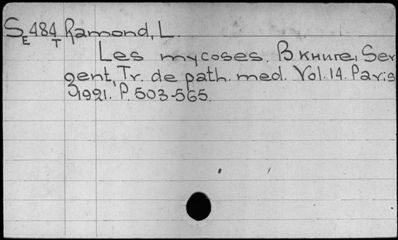 SE484T Ramond, L.
Les mycoses. В книге, Ser
gent, Tr. de path. med. Vol. 14. Paris
1921. P. 503-565.